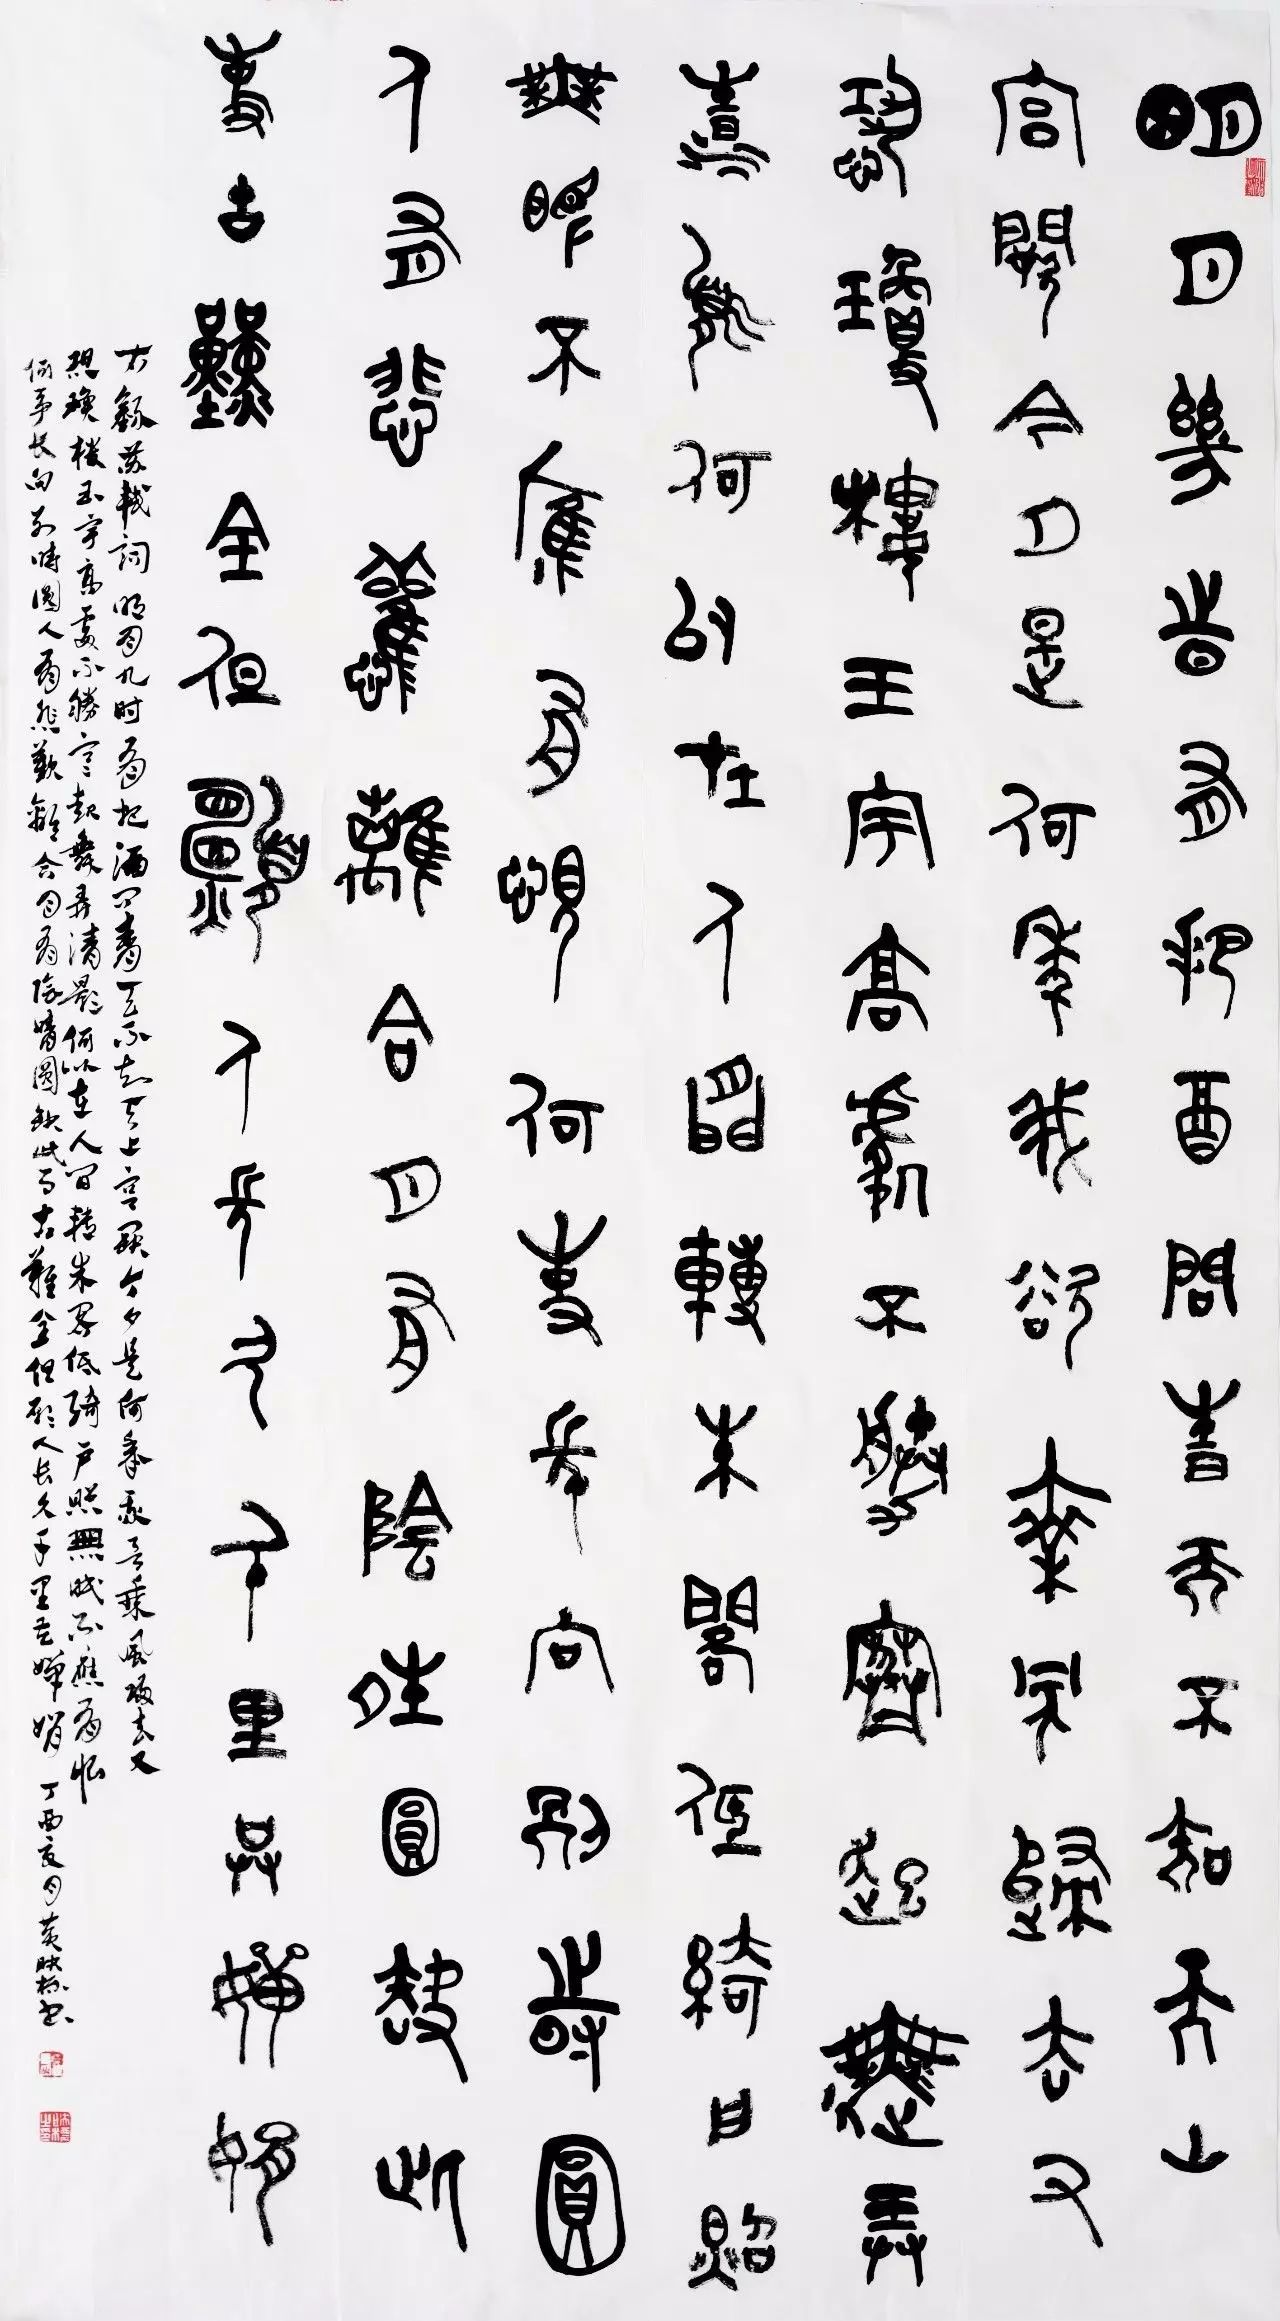 明月幾時有把酒問青天不知天上
宮闕今夕是何年我欲乘風歸去又
恐瓊樓玉宇高處不勝寒起舞弄
清影何似在人間轉朱閣低綺戶照
無眠不應有恨何事長向別時圓
人有悲歡離合月有陰晴圓缺此
事古難全但願人長久千里共嬋娟
右錄苏軾詞明月几时有把酒问青天不知天上宫阙今夕是何年我欲乘風归去又
恐瓊楼玉宇高處不勝寒起舞弄清影何似在人间转朱阁低绮户照無眠不應有恨
何事长向别時圆人有悲歡離合月有陰晴圆缺此事古難全但愿人长久千里共嬋娟丁酉夏月黄映书